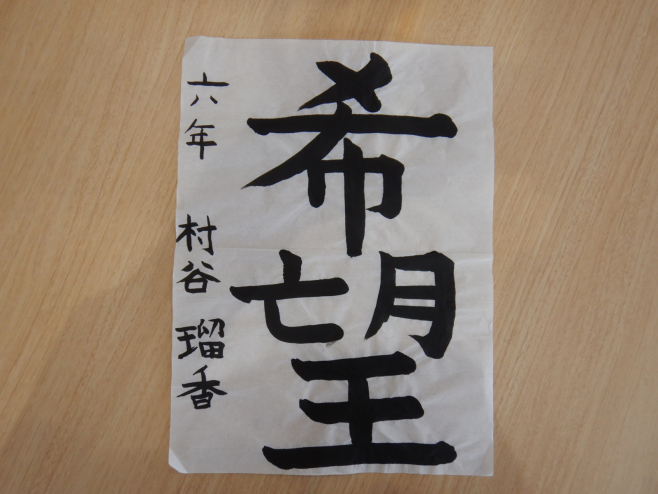 希望
六年 村谷 瑠香